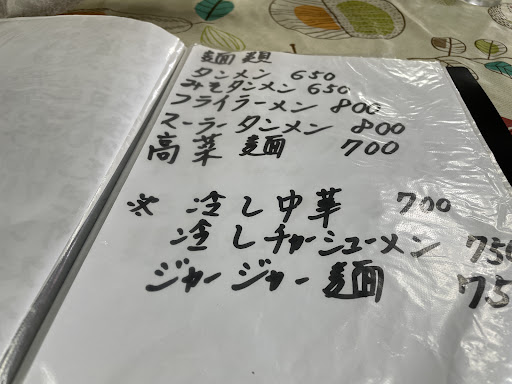 麺類
タンメン 650
みそタンメン 650
フライラーメン 800
スーラータンメン 800
高菜麺 700
※ 冷し中華 700
冷しチャーシューメン 750
ジャージャー麺 75